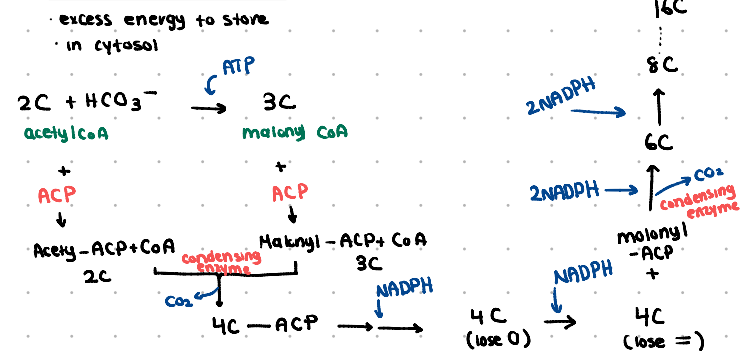 · excess energy to store
· in cytosol
ATP
2C + HCO3⁻ → 3C
acetylCoA
malonyl CoA
+
+
ACP
ACP
Acety-ACP+CoA
2C
Malonyl-ACP+ CoA
3C
condensing
enzyme
CO2
4C — ACP
NADPH
4C
(lose O)
NADPH
4C
(lose =)
+
malonyl
-ACP
condensing
enzyme
CO2
2NADPH
6C
2NADPH
8C
16C